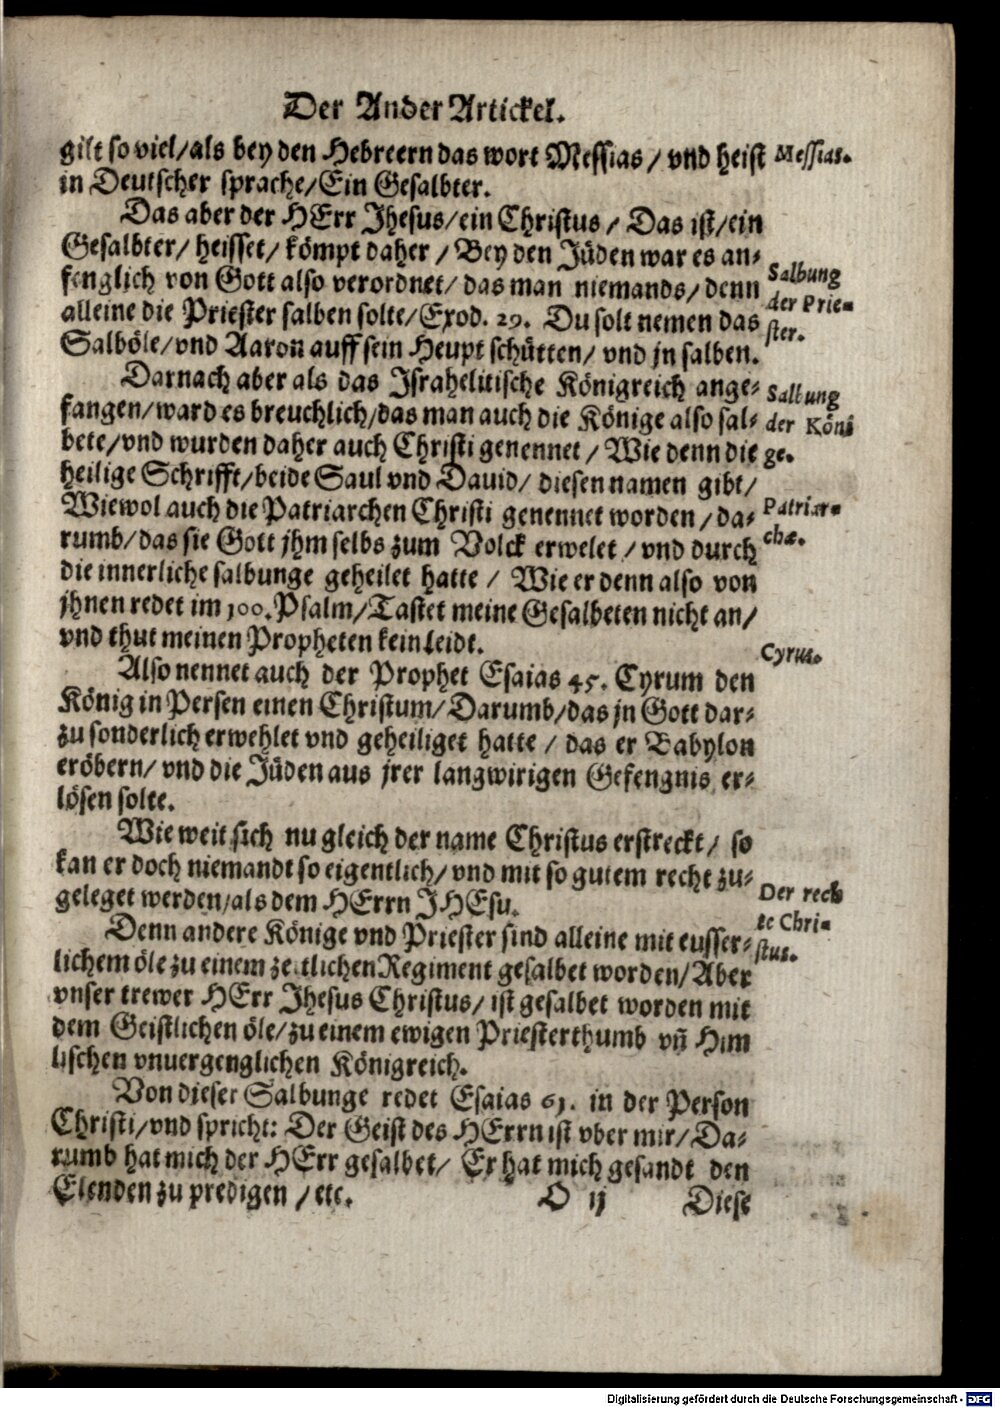 Der Ander Artickel.
gilt so viel/als bey den Hebreern das wort Messias/ vnd heist
Messias.
in Deutscher sprache/Ein Gesalbter.
Das aber der HErr Jhesus/ein Christus/ Das ist/ein
Gesalbter/ heisset/ kömpt daher/ Bey den Jüden war es an-
fenglich von Gott also verordnet/ das man niemands/ denn
alleine die Priester salben solte/Exod. 29. Du solt nemen das
Salböle/vnd Aaron auff sein Heupt schütten/ vnd jn salben.
Salbung
der Prie-
ster.
Darnach aber als das Jsrahelitische Königreich ange-
fangen/ward es breuchlich/das man auch die Könige also sal-
bete/vnd wurden daher auch Christi genennet/ Wie denn die
heilige Schrifft/beide Saul vnd Dauid/ diesen namen gibt/
Wiewol auch die Patriarchen Christi genennet worden/ da-
rumb/das sie Gott jhm selbs zum Volck erwelet/ vnd durch
die innerliche salbunge geheilet hatte/ Wie er denn also von
jhnen redet im 100. Psalm/Tastet meine Gesalbeten nicht an/
vnd thut meinen Propheten kein leidt.
Salbung
der Köni
ge.
Patriar-
chæ.
Also nennet auch der Prophet Esaias 45. Cyrum den
König in Persen einen Christum/Darumb/das jn Gott dar-
zu sonderlich erwehlet vnd geheiliget hatte/ das er Babylon
eröbern/ vnd die Jüden aus jrer langwirigen Gefengnis er-
lösen solte.
Cyrus.
Wie weit sich nu gleich der name Christus erstreckt/ so
kan er doch niemandt so eigentlich/ vnd mit so gutem recht zu-
geleget werden/als dem HErrn JHEsu.
Denn andere Könige vnd Priester sind alleine mit eusser-
lichem öle zu einem zeitlichen Regiment gesalbet worden/Aber
vnser trewer HErr Jhesus Christus/ ist gesalbet worden mit
dem Geistlichen öle/zu einem ewigen Priesterthumb vn̄ Him
lischen vnuergenglichen Königreich.
Der rech
te Chri-
stus.
Von dieser Salbunge redet Esaias 61. in der Person
Christi/vnd spricht: Der Geist des HErrn ist vber mir/ Da-
rumb hat mich der HErr gesalbet/ Er hat mich gesandt den
Elenden zu predigen/ etc.
O ij
Diese
Digitalisierung gefördert durch die Deutsche Forschungsgemeinschaft - DFG